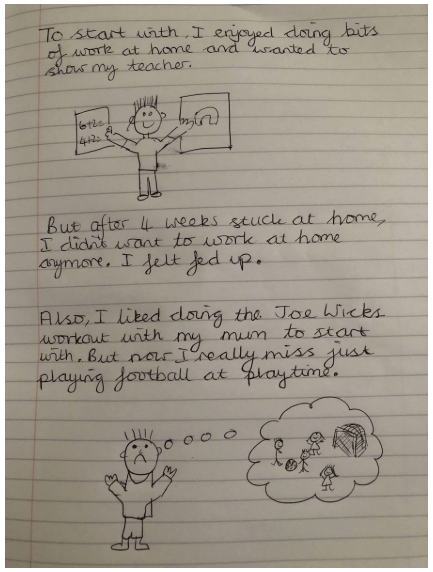 To start with, I enjoyed doing bits
of work at home and wanted to
show my teacher.
6+2=
4+2=
But after 4 weeks stuck at home,
I didn't want to work at home
anymore. I felt fed up.
Also, I liked doing the Joe Wicks
workout with my mum to start
with. But now I really miss just
playing football at playtime.